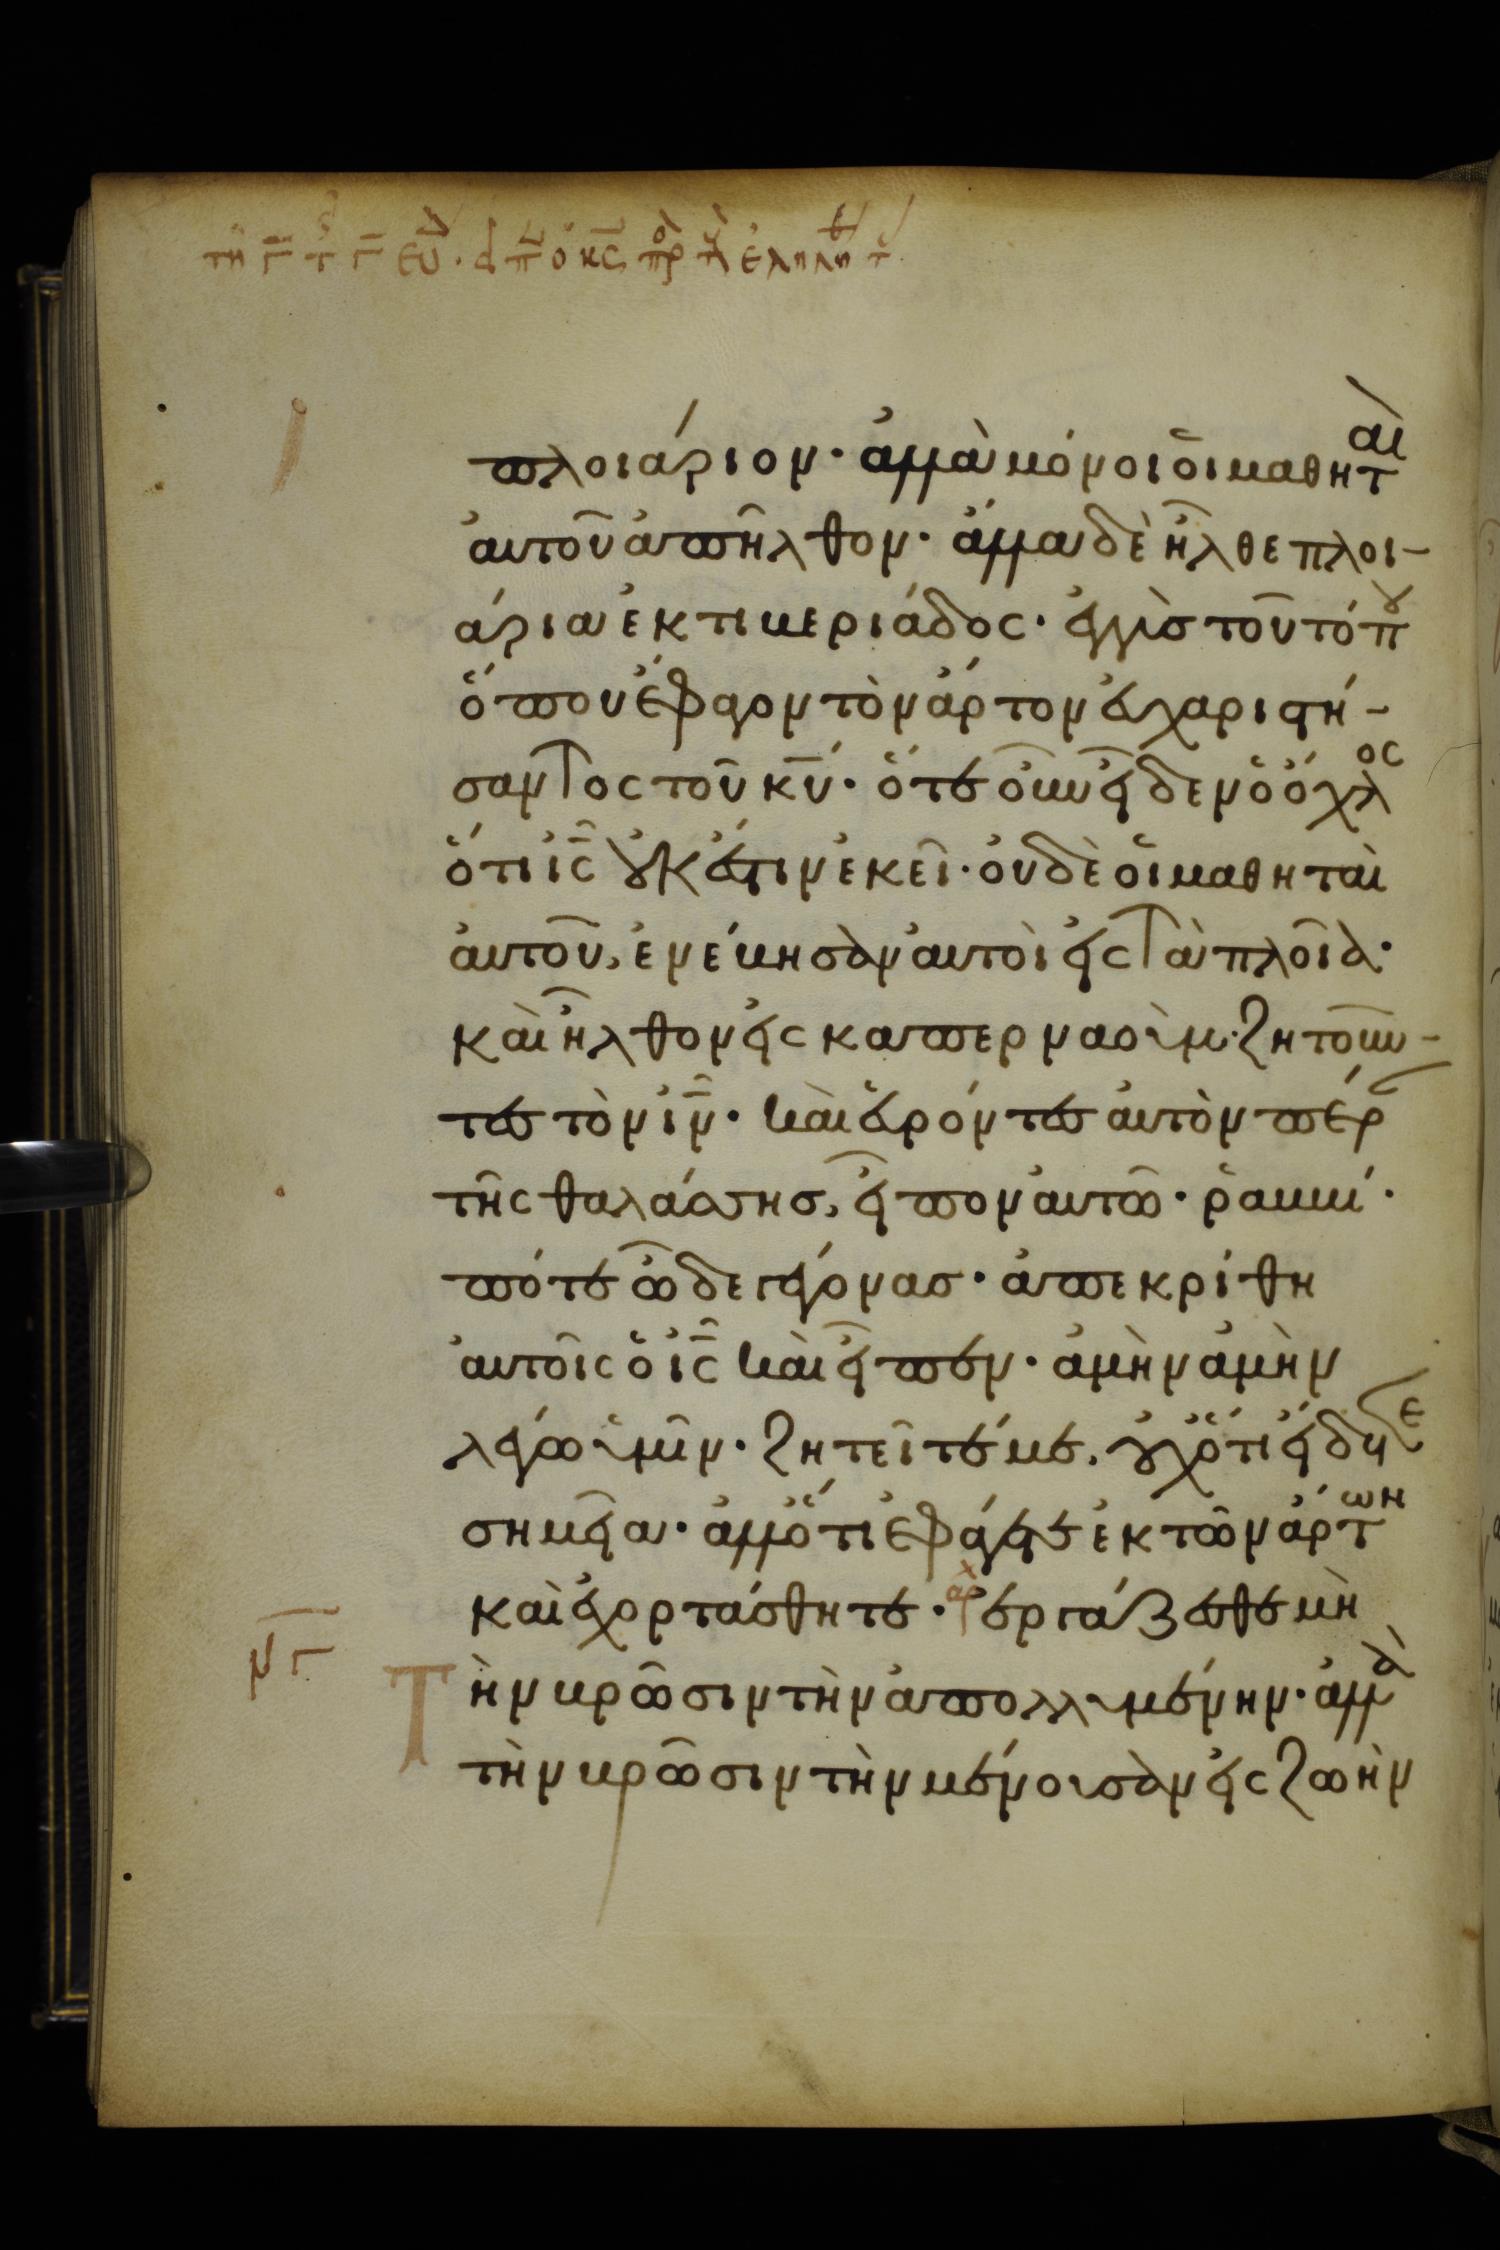 τῇ γ τ γ ευ. ειπ ο κς πρ τ εληλυ τ
πλοιάριον· ἀλλὰ μόνοι οἱ μαθητ αὶ
ἀυτοῦ ἀπῆλθον· ἄλλα δὲ ἦλθε πλοι-
άρια ἐκ τιμεριάδος· ἐγγὺσ τοῦ τόπου
ὅπου ἔφαγον τὸν ἄρτον ἐυχαριστή-
σαντος τοῦ κυ· ὅτε οὖν εἶδεν ὁ ὄχλος
ὅτι ις οὐκ ἔστιν ἐκεῖ· ὀυδὲ οἱ μαθηταὶ
ἀυτοῦ, ἐνέμησαν ἀυτοὶ εἰς τὰ πλοῖα·
καὶ ἦλθον εἰς καπερναοὺμ· ζητοῦν-
τες τὸν ιν· καὶ ἑυρόντες ἀυτὸν πέρ
τῆς θαλάσσησ, εἶπον ἀυτῶ· ῥαμμί·
πότε ὧδε γέγονασ· ἀπεκρίθη
ἀυτοῖς ὁ ις καὶ εἶπεν· ἀμὴν ἀμὴν
λέγω ὑμῖν· ζητεῖτέ με, οὐχ ὅτι εἴδετε
σημεῖα· ἀλλ ὅτι ἐφάγετε ἐκ τῶν ἄρτ ων
καὶ ἐχορτάσθητε· ἀρχ ἐργάζεσθε μὴ
νγ Τὴν μρῶσιν τὴν ἀπολλυμένην· ἀλλὰ
τὴν μρῶσιν τὴν μένουσαν εἰς ζωὴν